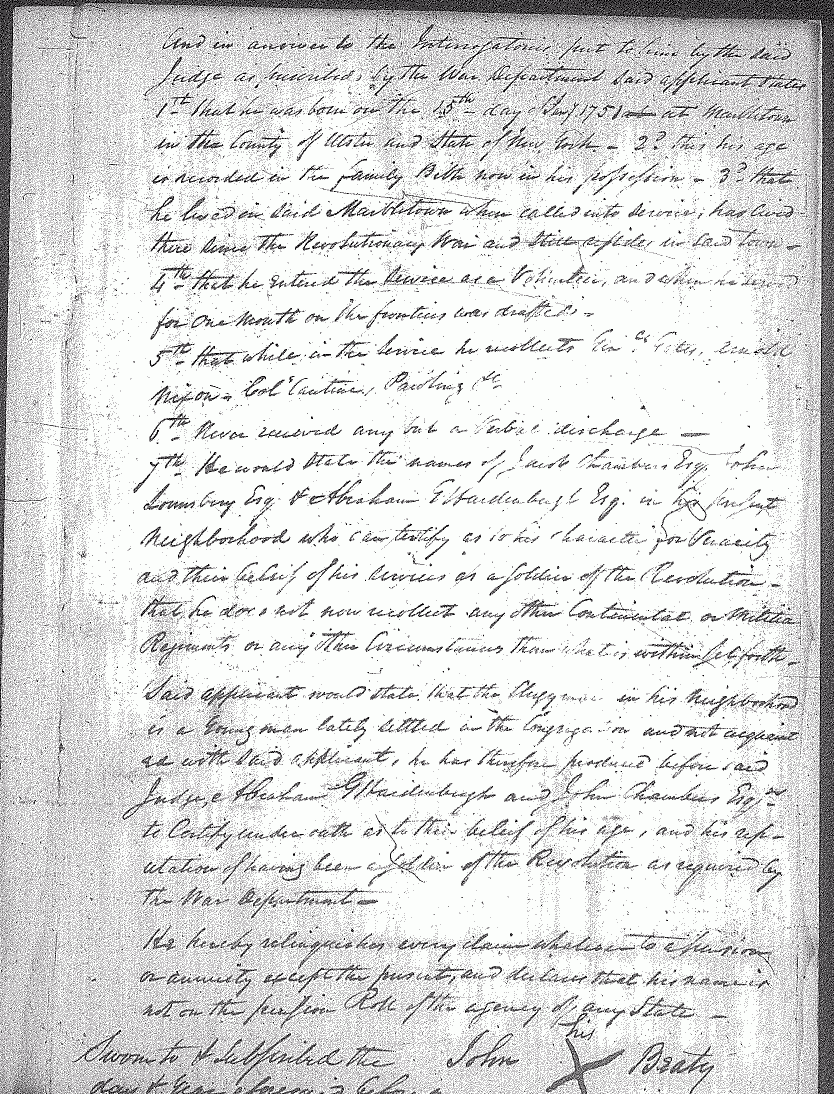 And in answer to the Interrogatories put to him by the said
Judge as prescribed by the War Department said applicant States
1st That he was born on the 15th day of Jany 1751 at Marbletown
in the County of Ulster and State of New York - 2d this his age
is recorded in the family Bible now in his possession - 3d that
he lived in said Marbletown when called into service, has lived
there since the Revolutionary War and still resides in said town -
4th that he entered the Service as a Volunteer, and when he served
for one month on the frontiers was drafted -
5th that while in the Service he recollects Genls Gates, Arnold
Nixon - Cols Cantine, Pawling &c
6th Never received any but a Verbal discharge -
7th He would State the names of Jacob Chambers Esq. John
Lounsbery Esq & Abraham G Hardenbergh Esq. in his present
Neighborhood who can testify as to his character for Veracity
and their belief of his services as a Soldier of the Revolution -
that he does not now recollect any other Continental or Militia
Regiments or any other Circumstances than what is within set forth -
Said applicant would state that the Clergyman in his Neighborhood
is a Young man lately settled in the Congregation and not acquaint
ed with said applicant, he has therefore produced before said
Judge, Abraham G Hardenbergh and John Chambers Esqrs
to Certify under oath as to their belief of his age, and his rep-
utation of having been a Soldier of the Revolution as required by
the War Department -
He hereby relinquishes every claim whatever to a pension
or annuity except the present, and declares that his name is
not on the pension Roll of the agency of any State -
Sworn to & Subscribed the John his X Beaty
day & Year aforesaid before